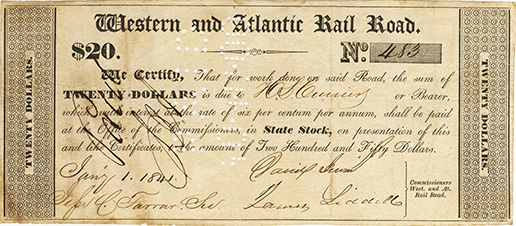 Western and Atlantic Rail Road.
$20.
No. 483
We Certify, That for work done on said Road, the sum of
TWENTY DOLLARS is due to or Bearer,
which, with interest at the rate of six per centum per annum, shall be paid
at the Office of the Commissioners, in State Stock, on presentation of this
and like Certificates, to the amount of Two Hundred and Fifty Dollars.
Jan'y 1. 1841.
James Liddell
Commissioners
West. and At.
Rail Road.
TWENTY DOLLARS.
TWENTY DOLLARS.